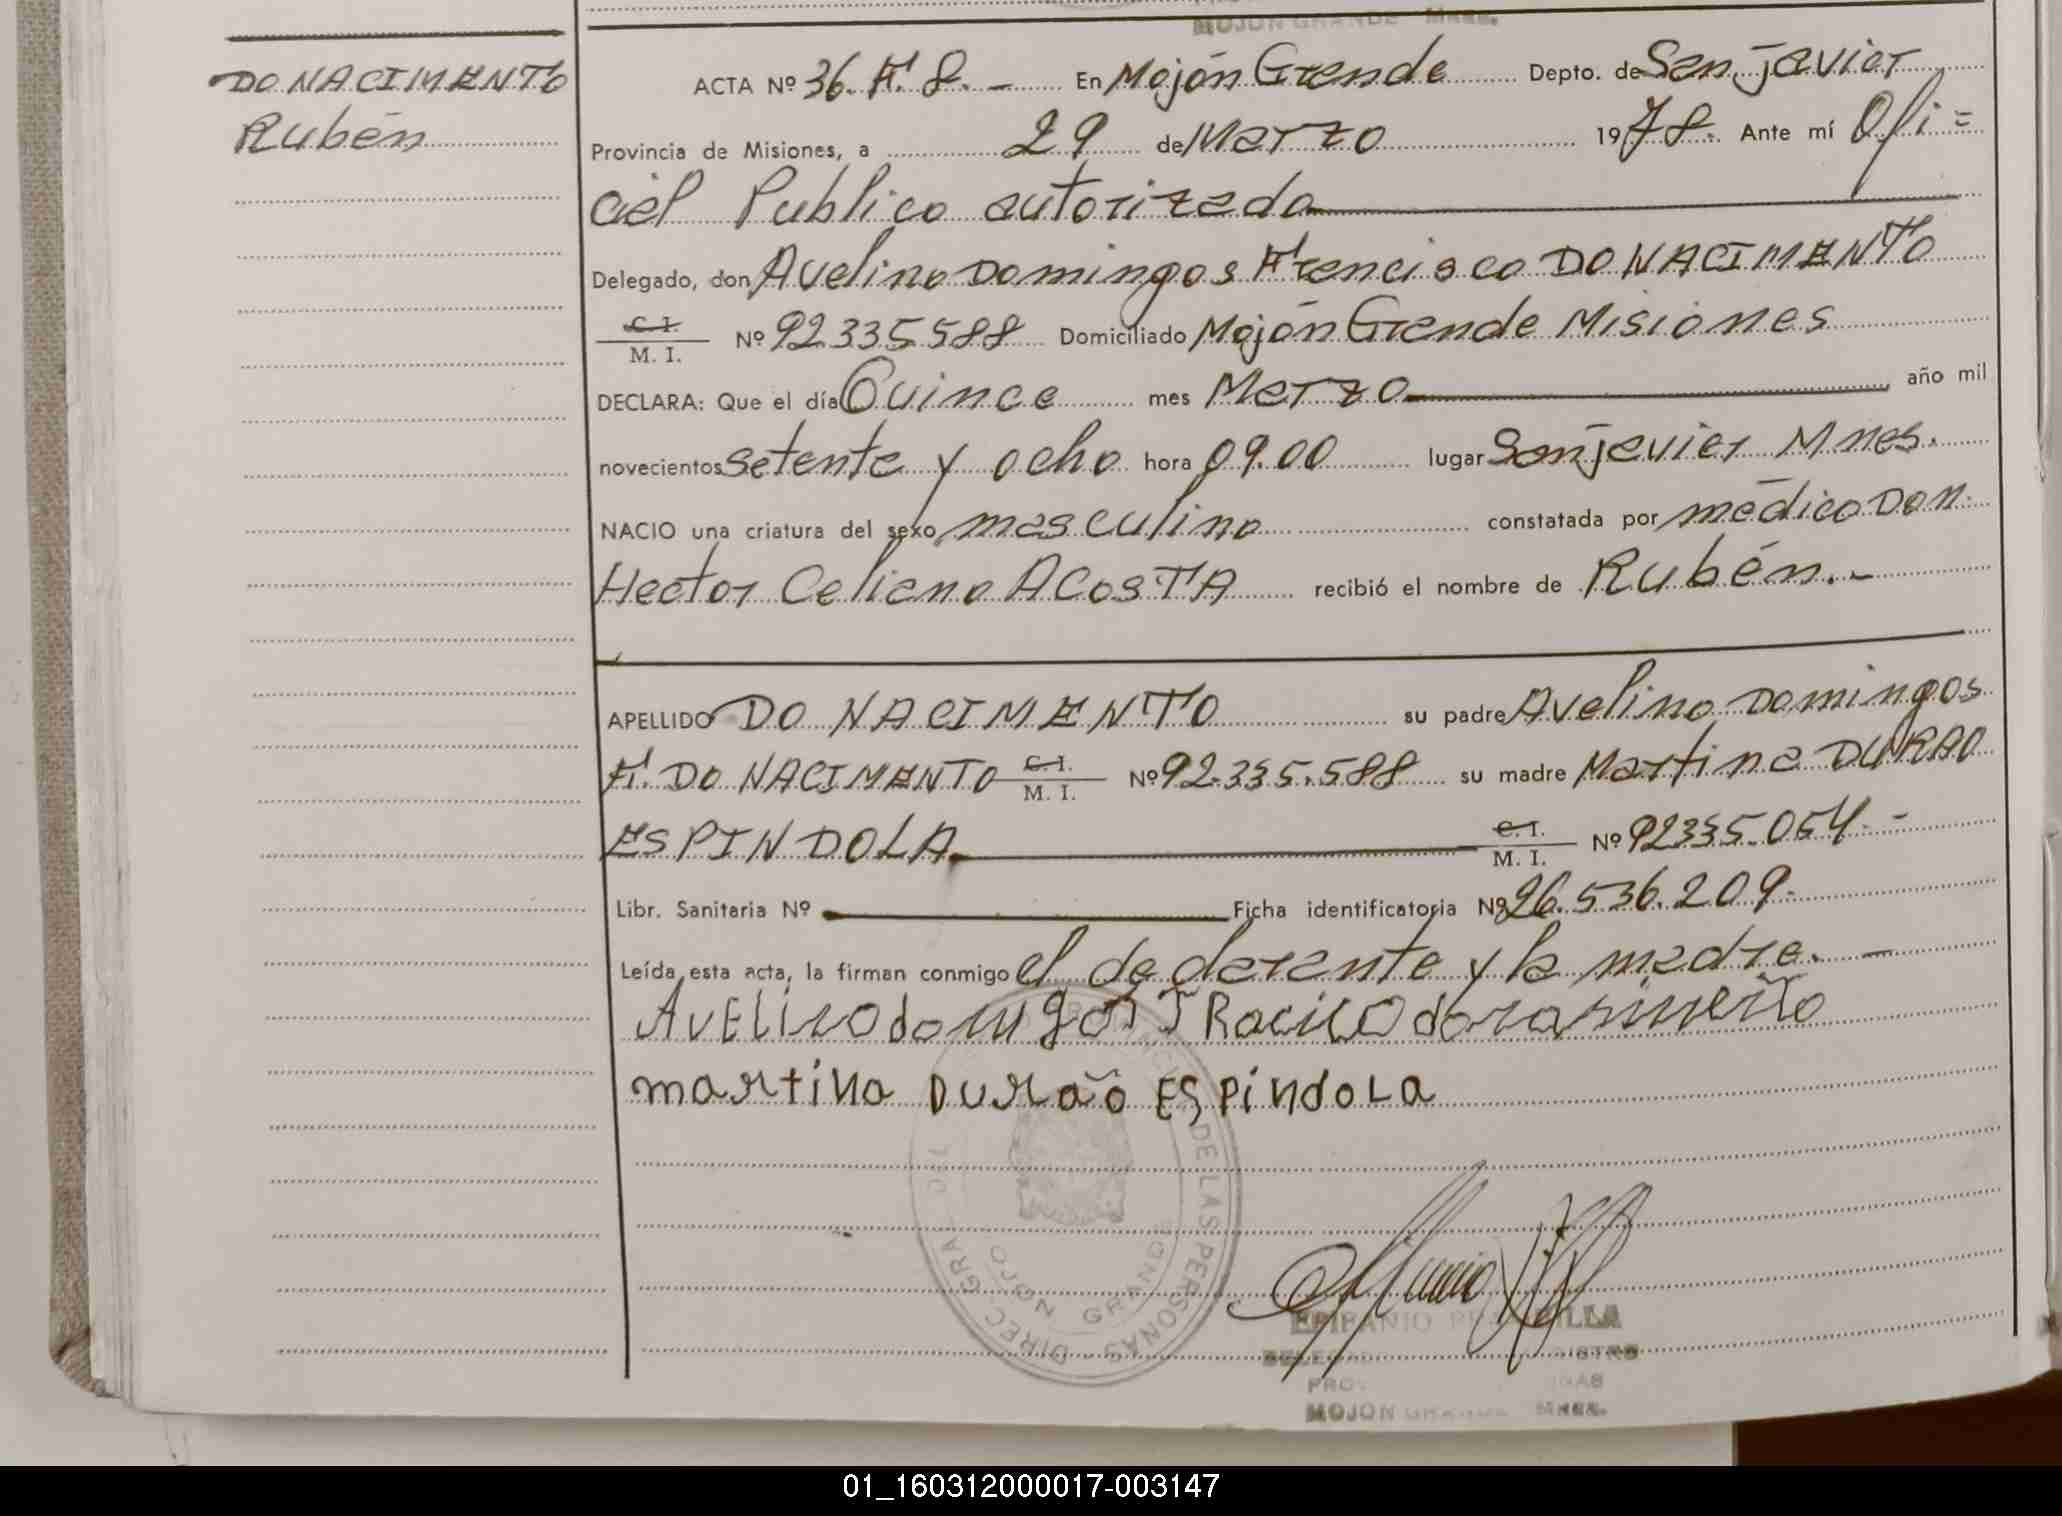 MOJON GRANDE Mnes.
DO NACIMENTO
Rubén
ACTA Nº 36. F. 8. - En Mojón Grande Depto. de San Javier
Provincia de Misiones, a 29 de Marzo 1978. Ante mí Ofi=
cial Publico autorizado
Delegado, don Avelino Domingos Francisco DO NACIMENTO
C. I. / M. I. Nº 92335588 Domiciliado Mojón Grande Misiones
DECLARA: Que el día Quince mes Marzo año mil
novecientos setenta y ocho hora 09.00 lugar San Javier Mnes.
NACIO una criatura del sexo masculino constatada por médico Don
Hector Celiano ACOSTA recibió el nombre de Rubén.-
APELLIDO DO NACIMENTO su padre Avelino Domingos
F. DO NACIMENTO C. I. / M. I. Nº 92.335.588 su madre Martina DURAO
ESPINDOLA C. I. / M. I. Nº 92335.054.-
Libr. Sanitaria Nº Ficha identificatoria Nº 26.536.209.
Leída esta acta, la firman conmigo el declarante y la madre. -
AvELiNO domingos FRaciCO donasimeito
martina Durão ESPíndoLa
DIREC. GRAL. DEL DE LAS PERSONAS
MOJON GRANDE
EPIFANIO
MOJON GRANDE Mnes.
01_160312000017-003147